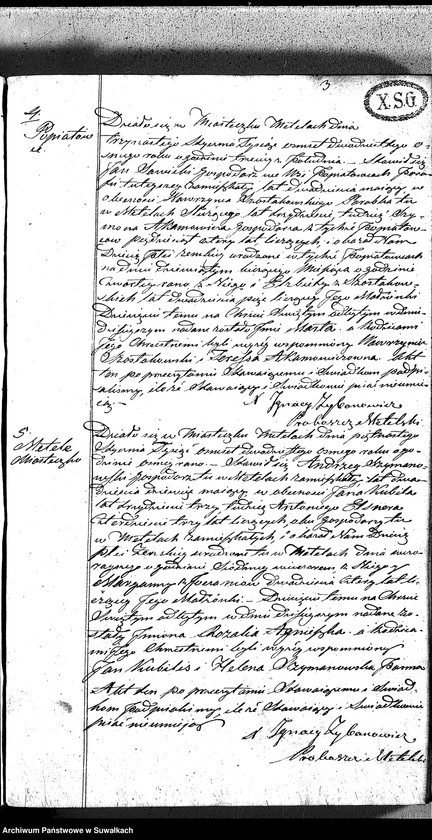 3
X.S.G
4.
Popiatow
ie
Działo się w Miasteczku Metelach dnia
trzynastego Stycznia Tysiąc ośmset dwudziestego ó-
smego roku o godzinie trzeciej z południa. – Stawił się
Jan Sawicki Gospodarz we Wsi Popiatowcach Para-
fii tutejszej zamieszkały lat dwadzieścia mający w
obecności Wawrzynca Szostakowskiego Parobka tu
w Metelach Służącego lat trzydzieści, tudzież Szy-
mona Adamowicza Gospodarza z tychże Popiatow-
ców pięćdziesiąt cztery lat liczących, i okazał Nam
Dziecię płci żeńskiej urodzone w tychże Popiatowcach
na dniu dziewiątym bieżącego Miesiąca o godzinie
czwartej rano z Niego i Elżbiety z Szostakow-
skich lat dwadzieścia pięć liczącej Jego Małżonki
Dziecięciu temu na Chrzcie Świętym odbytym w dniu
dzisiejszym nadane zostało Imię Marta a Rodzicami
Jego Chrzestnemi byli wyżej wspomniony Wawrzyniec
Szostakowski i Teressa Adamowiczowna. Akt
ten po przeczytaniu Stawaiącemu i Świadkom podpi-
saliśmy, ile że Stawaiący i Świadkowie pisać nieumie-
ią –
X Ignacy Zybanowicz
Proboszcz Metelski
5.
Metele
Miasteczko
Działo się w Miasteczku Metelach dnia piętnastego
Stycznia Tysiąc ośmset dwudziestego ósmego roku o go-
dzinie ósmej rano. – Stawił się Andrzej Szymano-
wski Gospodarz tu w Metelach zamieszkały, lat dwa-
dzieścia dziewięć mający w obecności Jana Kubila
lat trzydzieści trzy tudzież Antoniego Elsnera
czterdzieści trzy lat liczących, obu Gospodarzy tu
w Metelach zamieszkałych, i okazał Nam Dziecię
płci Żeńskiej urodzone tu w Metelach dnia wczo-
rayszego o godzinie siódmej wieczorem, z Niego y
Maryanny z dwadzieścia cztery lat li-
czącej Jego Małżonki. – Dziecięciu temu na Chrzcie
Świętym odbytym w dniu dzisiejszym nadane zo-
stały Imiona Rozalia Agnieszka a Rodzica-
mi Jego Chrzestnemi byli wyżej wspomniony
Jan Kubiles i Helena Szymanowska Panna
Akt ten po przeczytaniu Stawaiącemu i Świad-
kom podpisaliśmy, ile że Stawaiący i Świadkowie
pisać nieumieją
X Ignacy Zybanowicz
Proboszcz Metelski
Archiwum Państwowe w Suwałkach